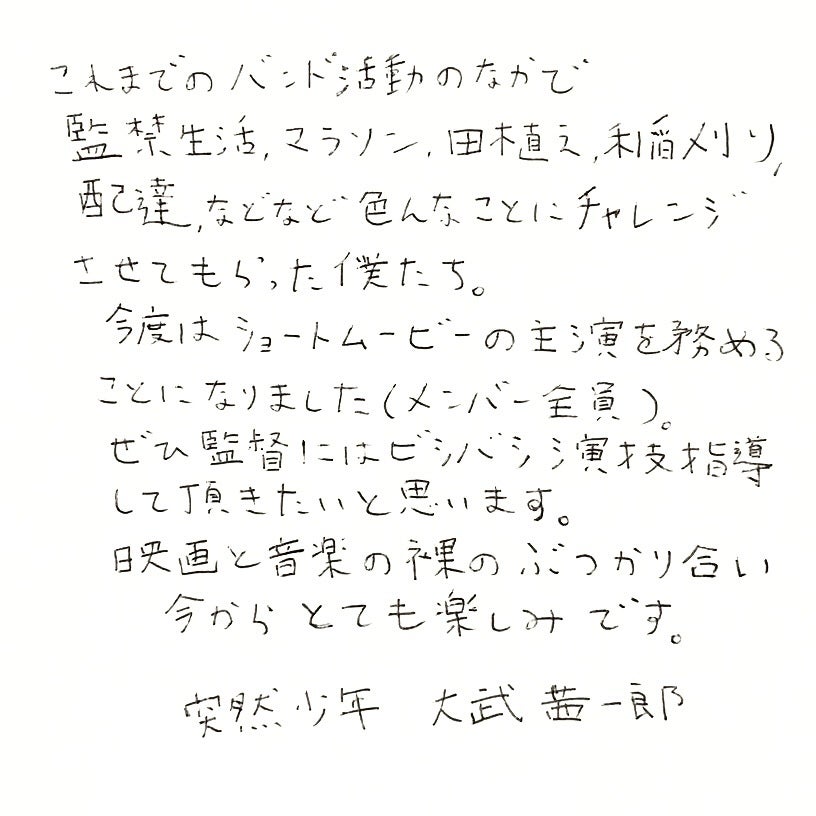 これまでのバンド活動のなかで
監禁生活,マラソン,田植え,稲刈り,
配達,などなど色んなことにチャレンジ
させてもらった僕たち。
今度はショートムービーの主演を務める
ことになりました(メンバー全員)。
ぜひ監督にはビシバシ演技指導
して頂きたいと思います。
映画と音楽の裸のぶつかり合い
今からとても楽しみです。
突然少年 大武茜一郎